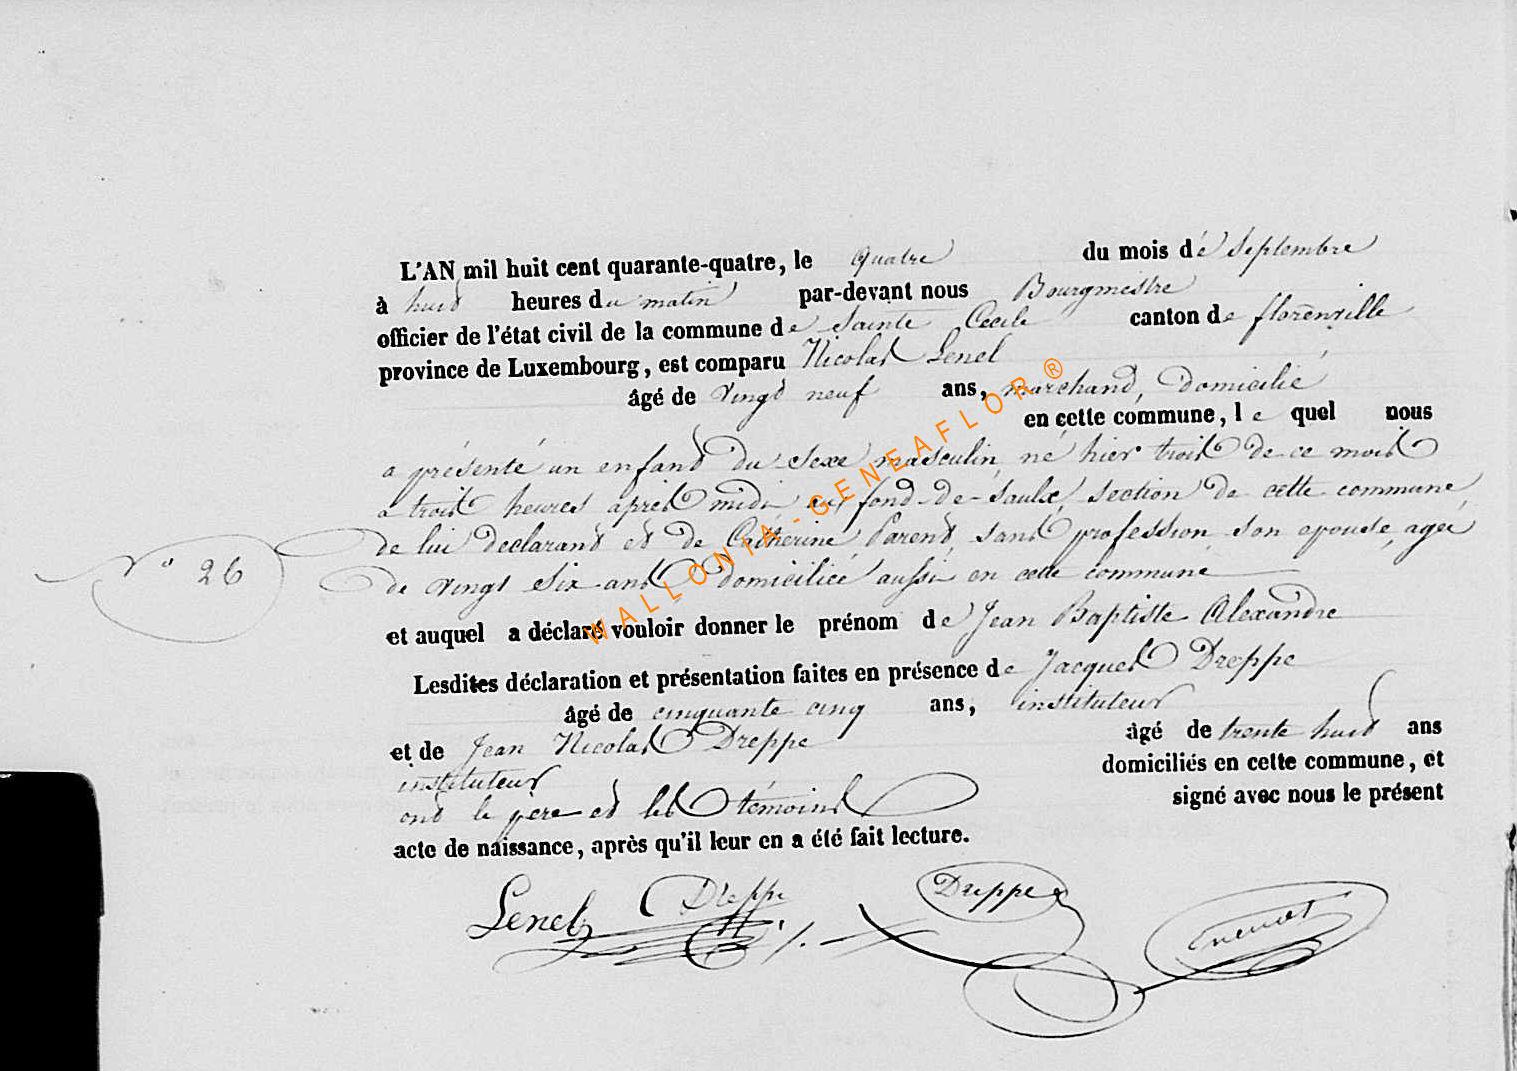 L'AN mil huit cent quarante-quatre, le quatre du mois de Septembre
à huit heures du matin par-devant nous Bourgmestre
officier de l'état civil de la commune de Sainte Cecile canton de florenville
province de Luxembourg, est comparu Nicolas Lenel
âgé de vingt neuf ans, marchand, domicilié
en cette commune, le quel nous
a présenté un enfant du sexe masculin, né hier trois de ce mois
a trois heures après midi au fond-de-saulx, section de cette commune,
de lui declarant et de Catherine Parent, sans profession son epouse, agée
N° 26
de vingt six ans domiciliée aussi en cette commune
et auquel a déclaré vouloir donner le prénom de Jean Baptiste Alexandre
Lesdites déclaration et présentation faites en présence de Jacques Dreppe
âgé de cinquante cinq ans, instituteur
et de Jean Nicolas Dreppe âgé de trente huit ans
instituteur domiciliés en cette commune, et
ont le pere et les témoins signé avec nous le présent
acte de naissance, après qu'il leur en a été fait lecture.
Lenel Dreppe Dreppe
WALLONIA-GENEAFLOR®